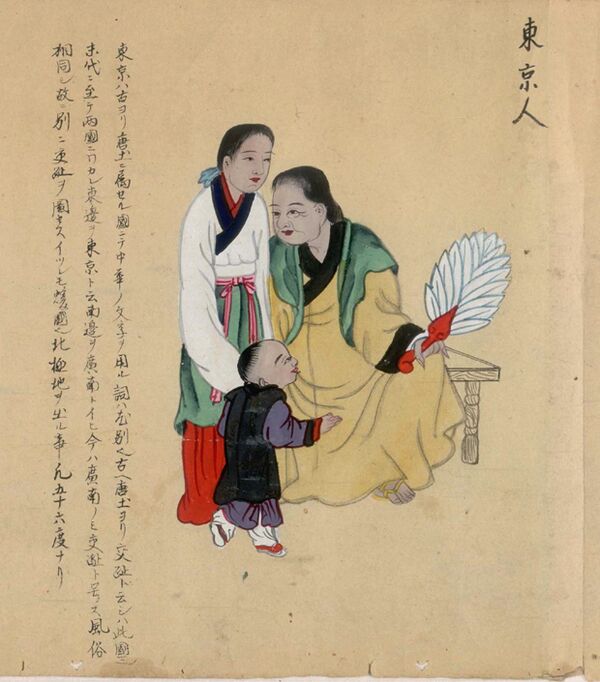 東京人
東京ハ古ヨリ唐土ニ属セル國ニテ中華ノ文字ヲ用ル詞ハ別也古ヘ唐土ヨリ交趾ト云シハ此國ニ
末代ニ至テ両國ニワカレ東邊ヲ東京ト云南邊ヲ廣南トイヒ今ハ廣南ノミ交趾ト号ス風俗
相同シ故ニ別ニ交趾ヲ圖セスイツレモ煖國也北極地ヲ出ル事凡五十六度ナリ